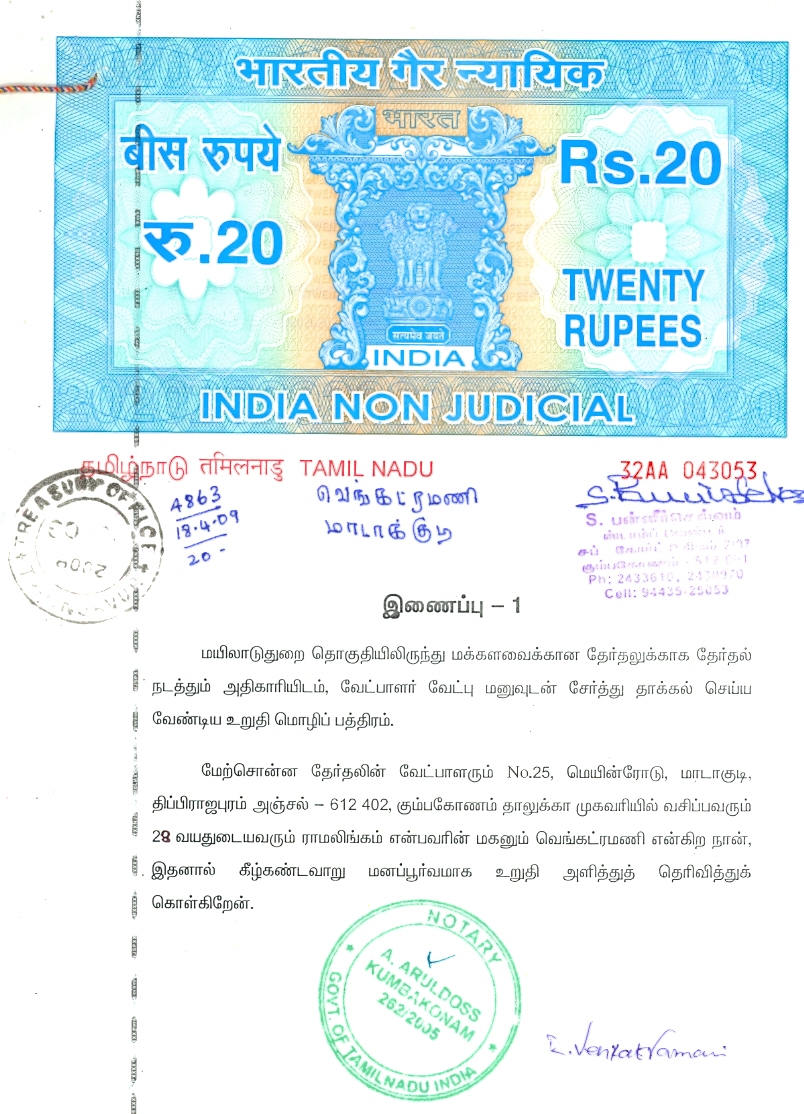 भारतीय गैर न्यायिक
भारत
बीस रुपये
Rs.20
रु.20
TWENTY
RUPEES
सत्यमेव जयते
INDIA
INDIA NON JUDICIAL
தமிழ்நாடு तमिलनाडु TAMIL NADU
32AA 043053
TREASURY OFFICE
4863
18.4.09
20 -
வெங்கட்ரமணி
மாடாக்குடி
S. பன்னீர்செல்வம்
Ph: 2433610,
Cell: 94435-25053
இணைப்பு – 1
மயிலாடுதுறை தொகுதியிலிருந்து மக்களவைக்கான தேர்தலுக்காக தேர்தல்
நடத்தும் அதிகாரியிடம், வேட்பாளர் வேட்பு மனுவுடன் சேர்த்து தாக்கல் செய்ய
வேண்டிய உறுதி மொழிப் பத்திரம்.
மேற்சொன்ன தேர்தலின் வேட்பாளரும் No.25, மெயின்ரோடு, மாடாகுடி,
திப்பிராஜபுரம் அஞ்சல் – 612 402, கும்பகோணம் தாலுக்கா முகவரியில் வசிப்பவரும்
28 வயதுடையவரும் ராமலிங்கம் என்பவரின் மகனும் வெங்கட்ரமணி என்கிற நான்,
இதனால் கீழ்கண்டவாறு மனப்பூர்வமாக உறுதி அளித்துத் தெரிவித்துக்
கொள்கிறேன்.
NOTARY
A. ARULDOSS
KUMBAKONAM
262/2005
GOVT. OF TAMILNADU INDIA
R. Venkatramani